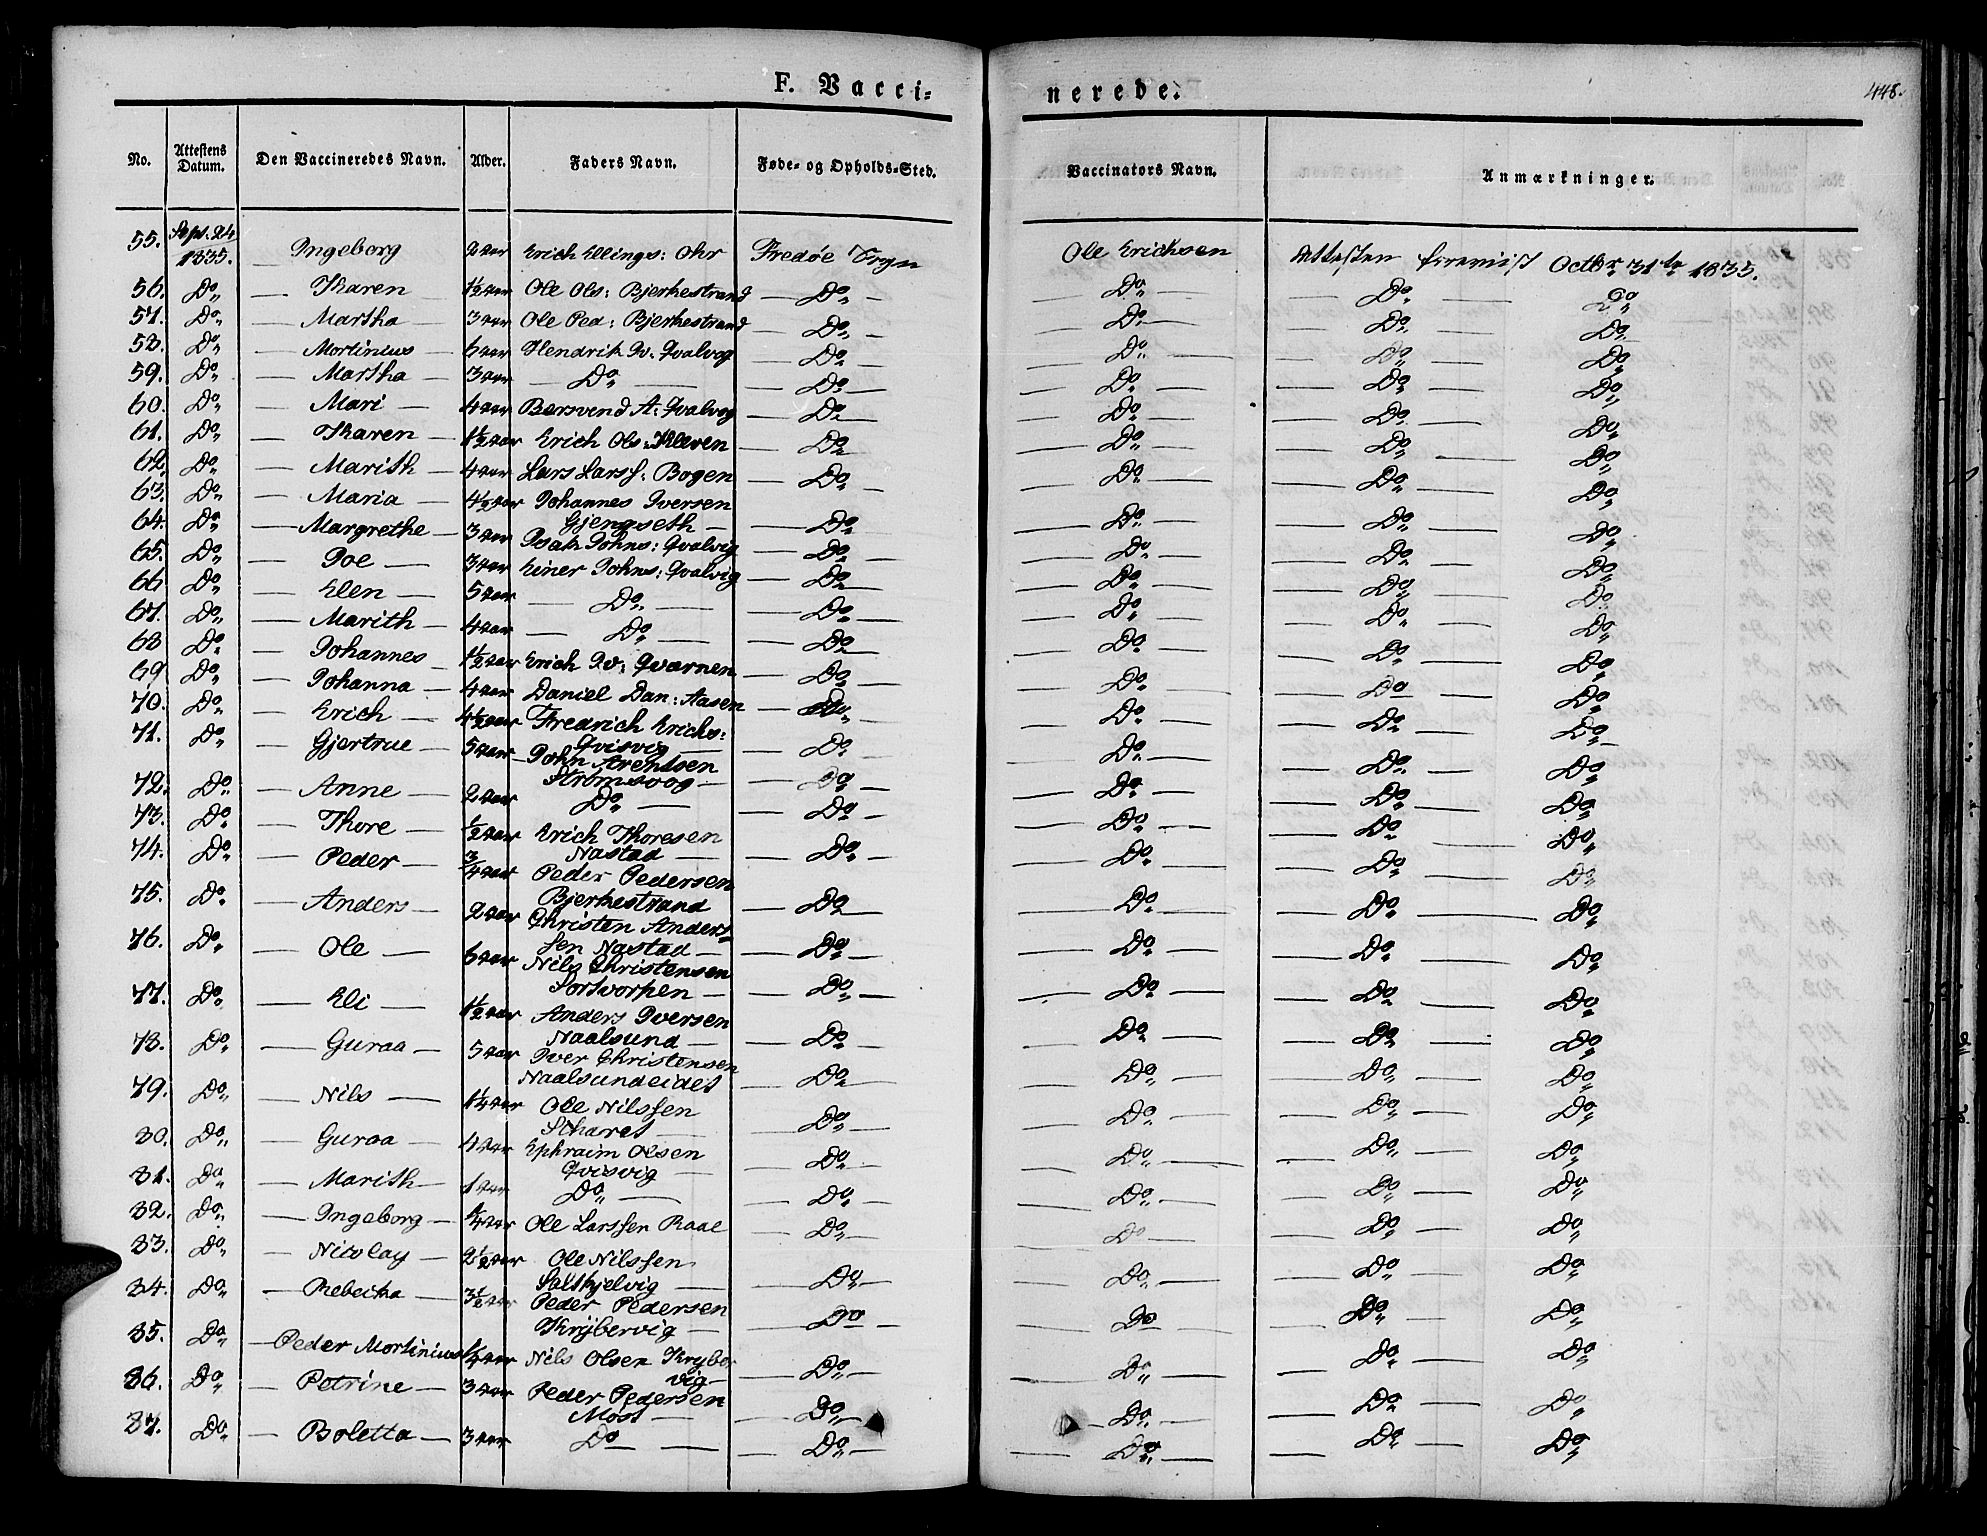 F. Vacci-
nerede.
448.
No. Attestens Datum. Den Vaccineredes Navn. Alder. Faders Navn. Føde- og Opholds-Sted. Vaccinators Navn. Anmærkninger.
55. Sept. 24 1835. Ingeborg 2 aar Erich Ellings: Ohr Fredøe Trgn Ole Erichsen Attesten foreviist Octbr 31te 1835.
56. Do — Karen 1½ aar Ole Ols: Bjerkestrand — Do — — Do — — Do — Do
57. Do — Martha 3 aar Ole Ped: Bjerkestrand — Do — — Do — — Do — Do
58. Do — Mortinius — 6 aar Hendrik Iv: Qvalvog — Do — — Do — — Do — Do
59. Do — Martha — 3 aar — Do — — Do — — Do — — Do — Do
60. Do — Mari — 4 aar Barsvend A: Qvalvog — Do — — Do — — Do — Do
61. Do — Karen — 1½ aar Erich Ols: Kleven — Do — — Do — — Do — Do
62. Do — Marith — 4 aar Lars Larss: Bogen — Do — — Do — — Do — Do
63. Do — Maria — 4½ aar Johannes Iversen
Gjengseth — — Do — — Do — — Do — Do
64. Do — Margrethe — 3 aar Isak Johns: Qvalvig — Do — — Do — — Do — Do
65. Do — Ioe — 3 aar Einer Johns: Qvalvig — Do — — Do — — Do — Do
66 Do — Elen — 5 aar — Do — — Do — — Do — — Do — Do
67. Do — Marith — 4 aar — Do — — Do — — Do — — Do — Do
68 Do — Johannes — 1½ aar Erich Iv: Qvarnen — Do — — Do — — Do — Do
69 Do — Johanna — 4 aar Daniel Dan: Aasen — Do — — Do — — Do — Do
70. Do — Erich — 4½ aar Fredrich Erichs:
Qvisvig — — Do — — Do — — Do — Do
71. Do — Gjertrue — 5 aar John Arentsen
Strømsvog — — Do — — Do — — Do — Do
72. Do — Anne — 2 aar Do — — Do — — Do — — Do — Do
73. Do — Thore — ½ aar Erich Thoresen
Nastad — — Do — — Do — — Do — Do
74. Do — Peder — ¾ aar Peder Pedersen
Bjerkestrand — Do — — Do — — Do — Do
75. Do — Anders — 2 aar Christen Anders-
sen Nastad — — Do — — Do — — Do — Do
76. Do — Ole — 6 aar Nils Christensen
Sortvorken — — Do — — Do — — Do — Do
77. Do — Eli — 1½ aar Anders Iversen
Naalsund — — Do — — Do — — Do — Do
78. Do — Guraa — 5 aar Iver Christensen
Naalsundeidet — Do — — Do — — Do — Do
79. Do — Nils — 1¼ aar Ole Nilssen
Skaret — Do — — Do — — Do — Do
80. Do — Guraa — 4 aar Ephraim Olsen
Qvisvig — — Do — — Do — — Do — Do
81. Do — Marith — 1 aar Do — — Do — — Do — — Do — Do
82. Do — Ingeborg — ¼ aar Ole Larssen Raae — Do — — Do — — Do — Do
83. Do — Nicolay — 2½ aar Ole Nilssen
Saltkjelvig — — Do — — Do — — Do — Do
84. Do — Rebecka — 3½ aar Peder Pedersen
Krybervig — — Do — — Do — — Do — Do
85. Do — Peder Mortinius ¼ aar Nils Olsen Kryber
vig — — Do — — Do — — Do — Do
86. Do — Petrine — 3 aar Peder Pedersen
Most — — Do — — Do — — Do — Do
87. Do — Boletta — 3 aar Do — — Do — — Do — — Do — Do